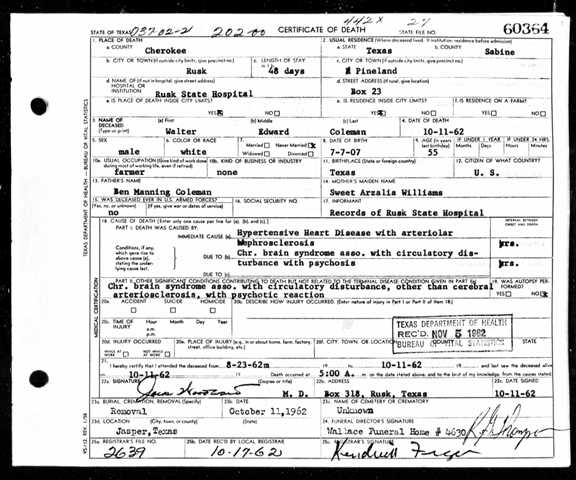 442X 27
STATE OF TEXAS 03702-2 20200 CERTIFICATE OF DEATH STATE FILE NO. 60364
1. PLACE OF DEATH 2. USUAL RESIDENCE (Where deceased lived. If institution: residence before admission)
a. COUNTY Cherokee a. STATE Texas b. COUNTY Sabine
b. CITY OR TOWN (If outside city limits, give precinct no.) Rusk c. LENGTH OF STAY 48 days c. CITY OR TOWN (If outside city limits, give precinct no.) Pineland
d. NAME OF (If not in hospital, give street address) HOSPITAL OR INSTITUTION Rusk State Hospital d. STREET ADDRESS (If rural, give location) Box 23
e. IS PLACE OF DEATH INSIDE CITY LIMITS? YES NO e. IS RESIDENCE INSIDE CITY LIMITS? YES NO f. IS RESIDENCE ON A FARM? YES NO
3. NAME OF DECEASED (Type or print) (a) First Walter (b) Middle Edward (c) Last Coleman 4. DATE OF DEATH 10-11-62
5. SEX male 6. COLOR OR RACE white 7. Married Never Married X Widowed Divorced 8. DATE OF BIRTH 7-7-07 9. AGE (In years last birthday) 55 IF UNDER 1 YEAR Months Days IF UNDER 24 HRS. Hours Min.
10a. USUAL OCCUPATION (Give kind of work done during most of working life, even if retired) farmer 10b. KIND OF BUSINESS OR INDUSTRY none 11. BIRTHPLACE (State or foreign country) Texas 12. CITIZEN OF WHAT COUNTRY? U. S.
13. FATHER'S NAME Ben Manning Coleman 14. MOTHER'S MAIDEN NAME Sweet Arzalia Williams
15. WAS DECEASED EVER IN U.S. ARMED FORCES? (Yes, no, or unknown) (If yes, give war or dates of service) no 16. SOCIAL SECURITY NO. 17. INFORMANT Records of Rusk State Hospital
18. CAUSE OF DEATH (Enter only one cause per line for (a), (b), and (c).) INTERVAL BETWEEN ONSET AND DEATH
PART I. DEATH WAS CAUSED BY:
IMMEDIATE CAUSE (a) Hypertensive Heart Disease with arteriolar
Nephrosclerosis yrs.
Conditions, if any, which gave rise to above cause (a), stating the underlying cause last. DUE TO (b) Chr. brain syndrome asso. with circulatory dis-
DUE TO (c) turbance with psychosis yrs.
PART II. OTHER SIGNIFICANT CONDITIONS CONTRIBUTING TO DEATH BUT NOT RELATED TO THE TERMINAL DISEASE CONDITION GIVEN IN PART I(a) 19. WAS AUTOPSY PERFORMED? YES NO
Chr. brain syndrome asso. with circulatory disturbance, other than cerebral
arteriosclerosis, with psychotic reaction
20a. ACCIDENT SUICIDE HOMICIDE 20b. DESCRIBE HOW INJURY OCCURRED. (Enter nature of injury in Part I or Part II of item 18.)
20c. TIME OF INJURY Hour Month Day Year a.m. p.m.
TEXAS DEPARTMENT OF HEALTH
REC'D NOV 5 1962
BUREAU OF VITAL STATISTICS
20d. INJURY OCCURRED WHILE AT WORK NOT WHILE AT WORK 20e. PLACE OF INJURY (e.g., in or about home, farm, factory, street, office building, etc.) 20f. CITY, TOWN, OR LOCATION COUNTY STATE
21. I hereby certify that I attended the deceased from 8-23-62 19 to 10-11-62 19 and last saw the deceased alive
10-11-62 19 Death occurred at 5:00 A. m. on the date stated above; and to the best of my knowledge, from the causes stated.
22a. SIGNATURE (Degree or title) M. D. 22b. ADDRESS Box 318, Rusk, Texas 22c. DATE SIGNED 10-11-62
23a. BURIAL, CREMATION, REMOVAL (Specify) Removal 23b. DATE October 11,1962 23c. NAME OF CEMETERY OR CREMATORY Unknown
23d. LOCATION (City, town, or county) (State) Jasper,Texas 24. FUNERAL DIRECTOR'S SIGNATURE Wallace Funeral Home # 4630
25a. REGISTRAR'S FILE NO. 2639 25b. DATE REC'D BY LOCAL REGISTRAR 10-17-62 25c. REGISTRAR'S SIGNATURE
TEXAS DEPARTMENT OF HEALTH — BUREAU OF VITAL STATISTICS
MEDICAL CERTIFICATION